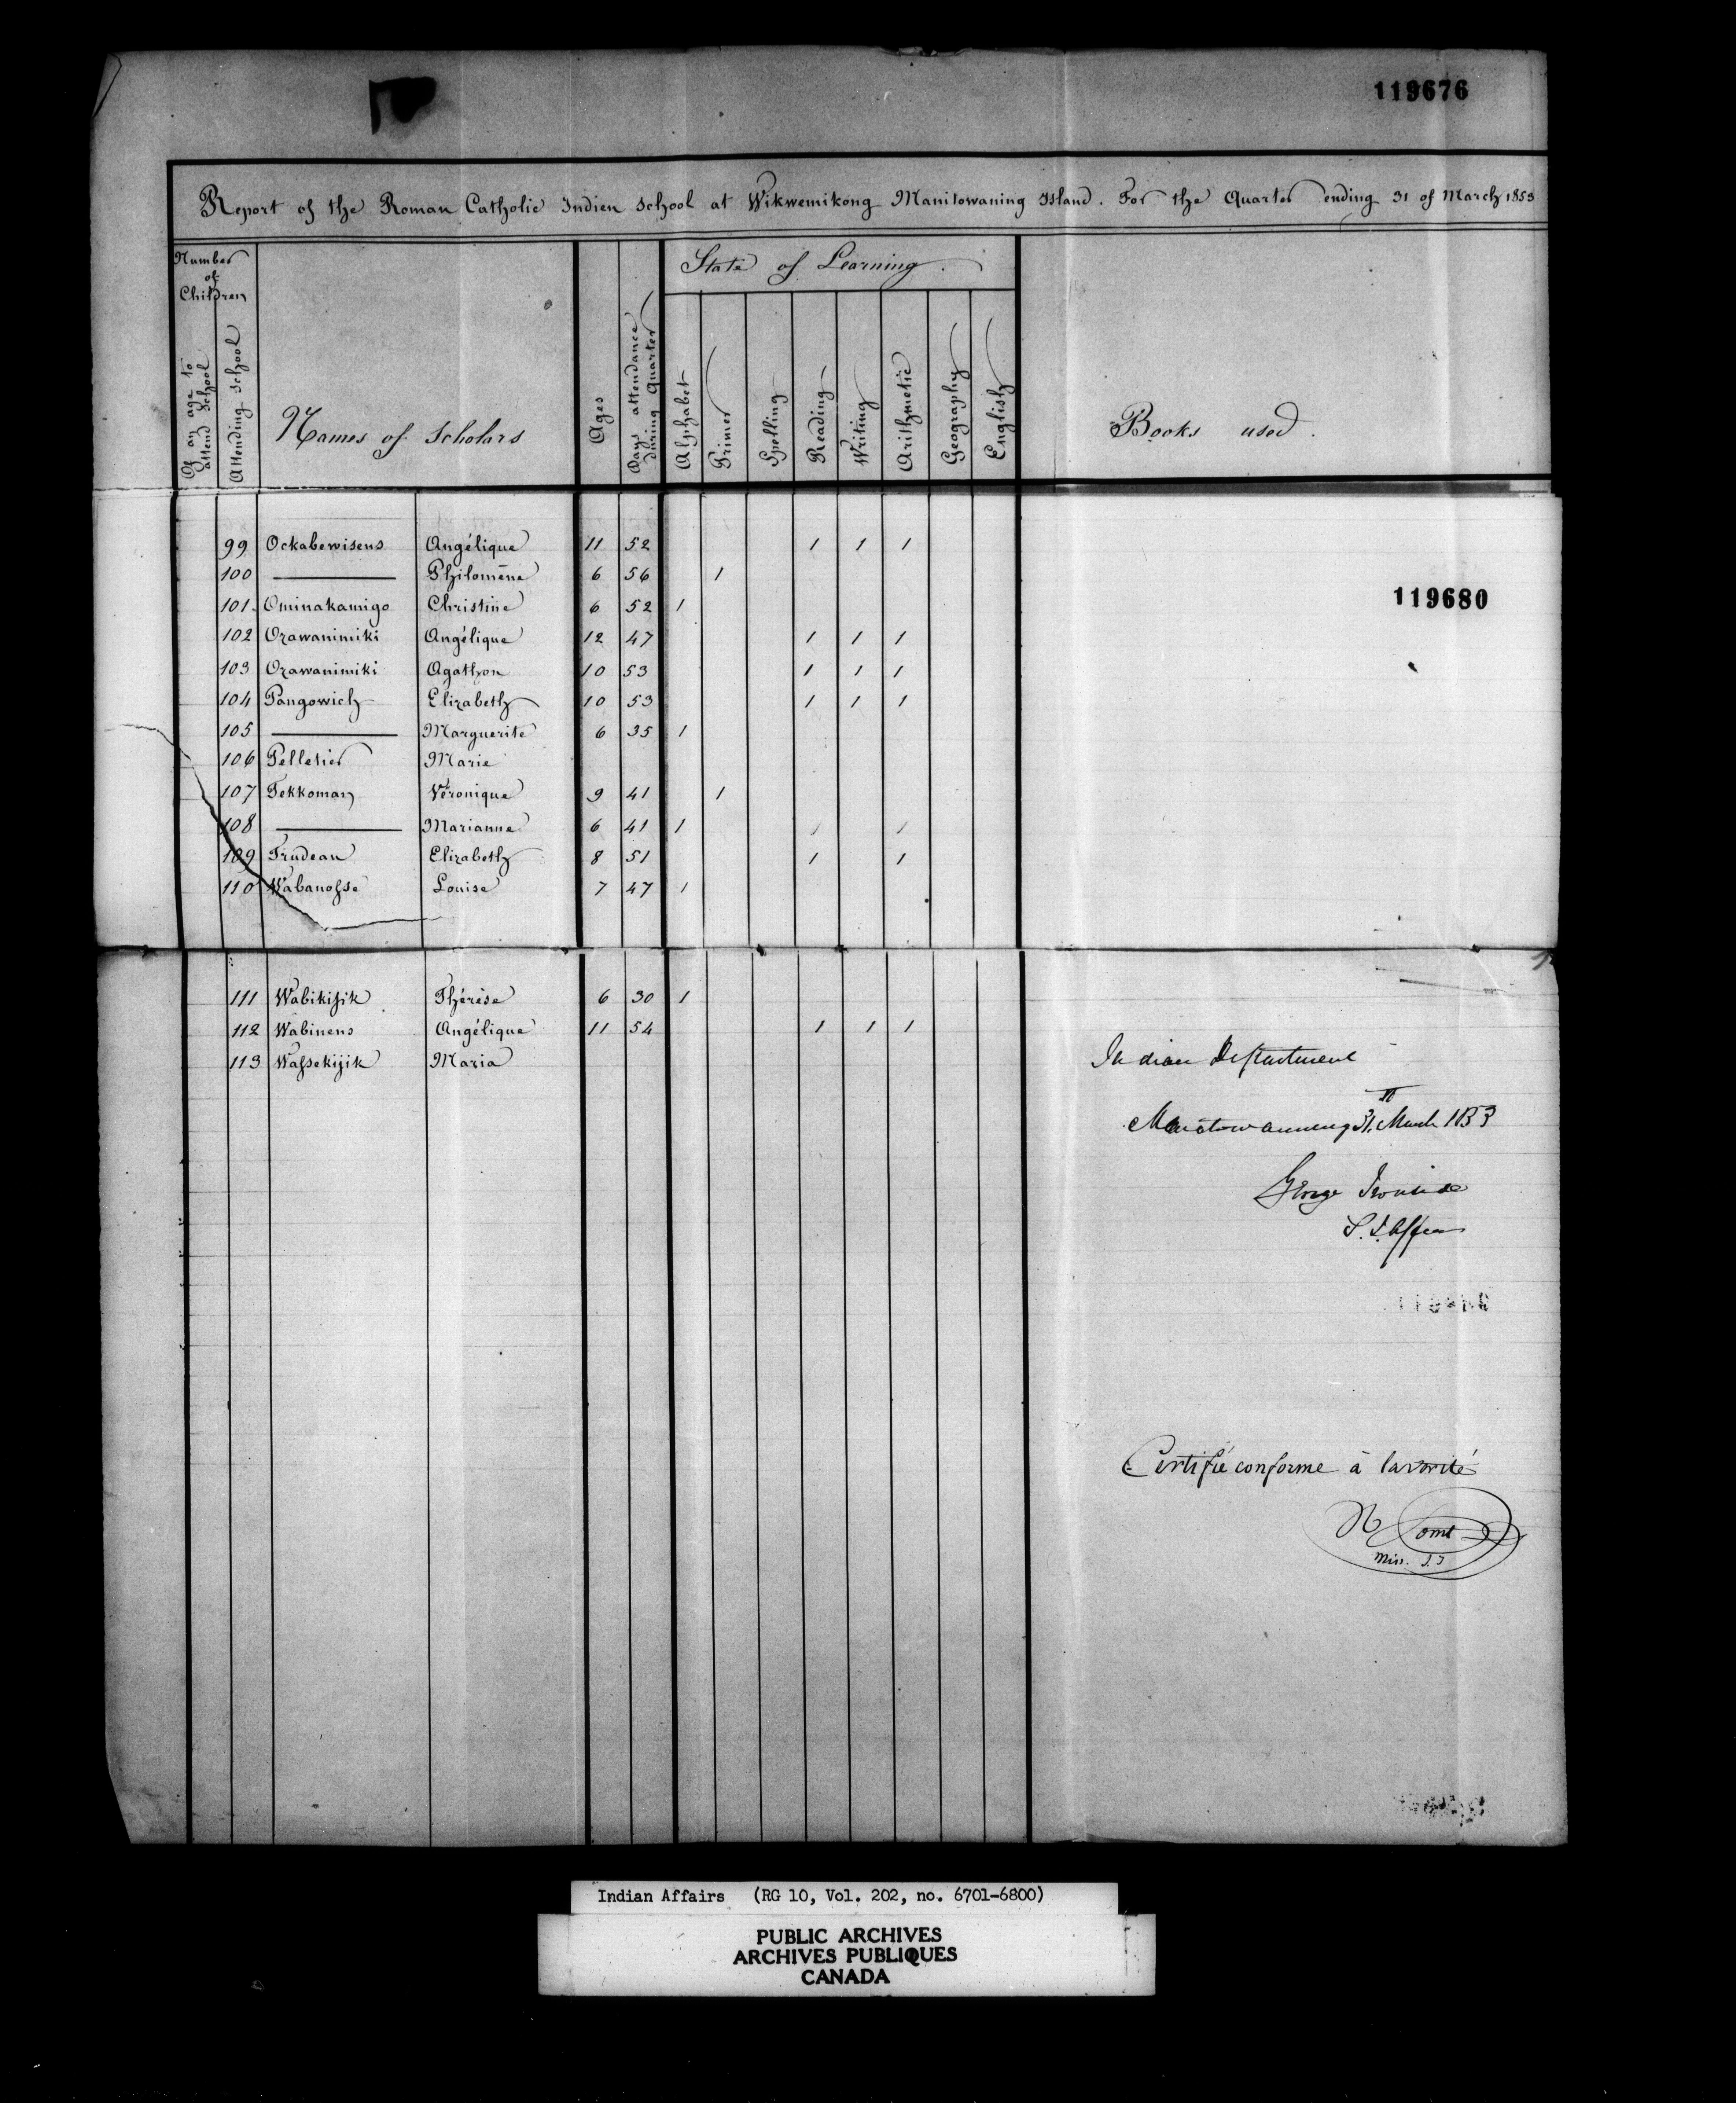 119676
Report of the Roman Catholic Indien School at Wikwemikong Manitowaning Island. For the Quarter ending 31 of March 1853
Number of Children
Of an age to attend School
Attending School
Names of Scholars
Ages
Days attendance during Quarter
State of Learning.
Alphabet
Primer
Spelling
Reading
Writing
Arithmetic
Geography
English
Books used.
99 Ockabewisens Angélique 11 52 1 1 1
100 ——— Philomène 6 56 1
101 Ominakamigo Christine 6 52 1
119680
102 Ozawanimiki Angélique 12 47 1 1 1
103 Ozawanimiki Agathon 10 53 1 1 1
104 Pangowich Elizabeth 10 53 1 1 1
105 ——— Marguerite 6 35 1
106 Pelletier Marie
107 Tekkoman Véronique 9 41 1
108 ——— Marianne 6 41 1 1 1
109 Trudeau Elizabeth 8 51 1 1
110 Wabanosse Louise 7 47 1
111 Wabikijik Thérèse 6 30 1
112 Wabinens Angélique 11 54 1 1 1
113 Wassekijik Maria
Indian Department
Manitowaning 31st March 1853
George Ironside
S. I. Affairs
Certifié conforme à la vérité
Miss. S.J
Indian Affairs (RG 10, Vol. 202, no. 6701-6800)
PUBLIC ARCHIVES
ARCHIVES PUBLIQUES
CANADA